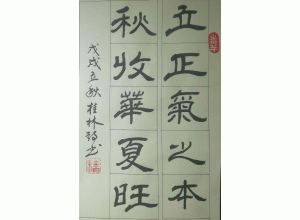 立正氣之本
秋收華夏旺
戊戌立秋桂林